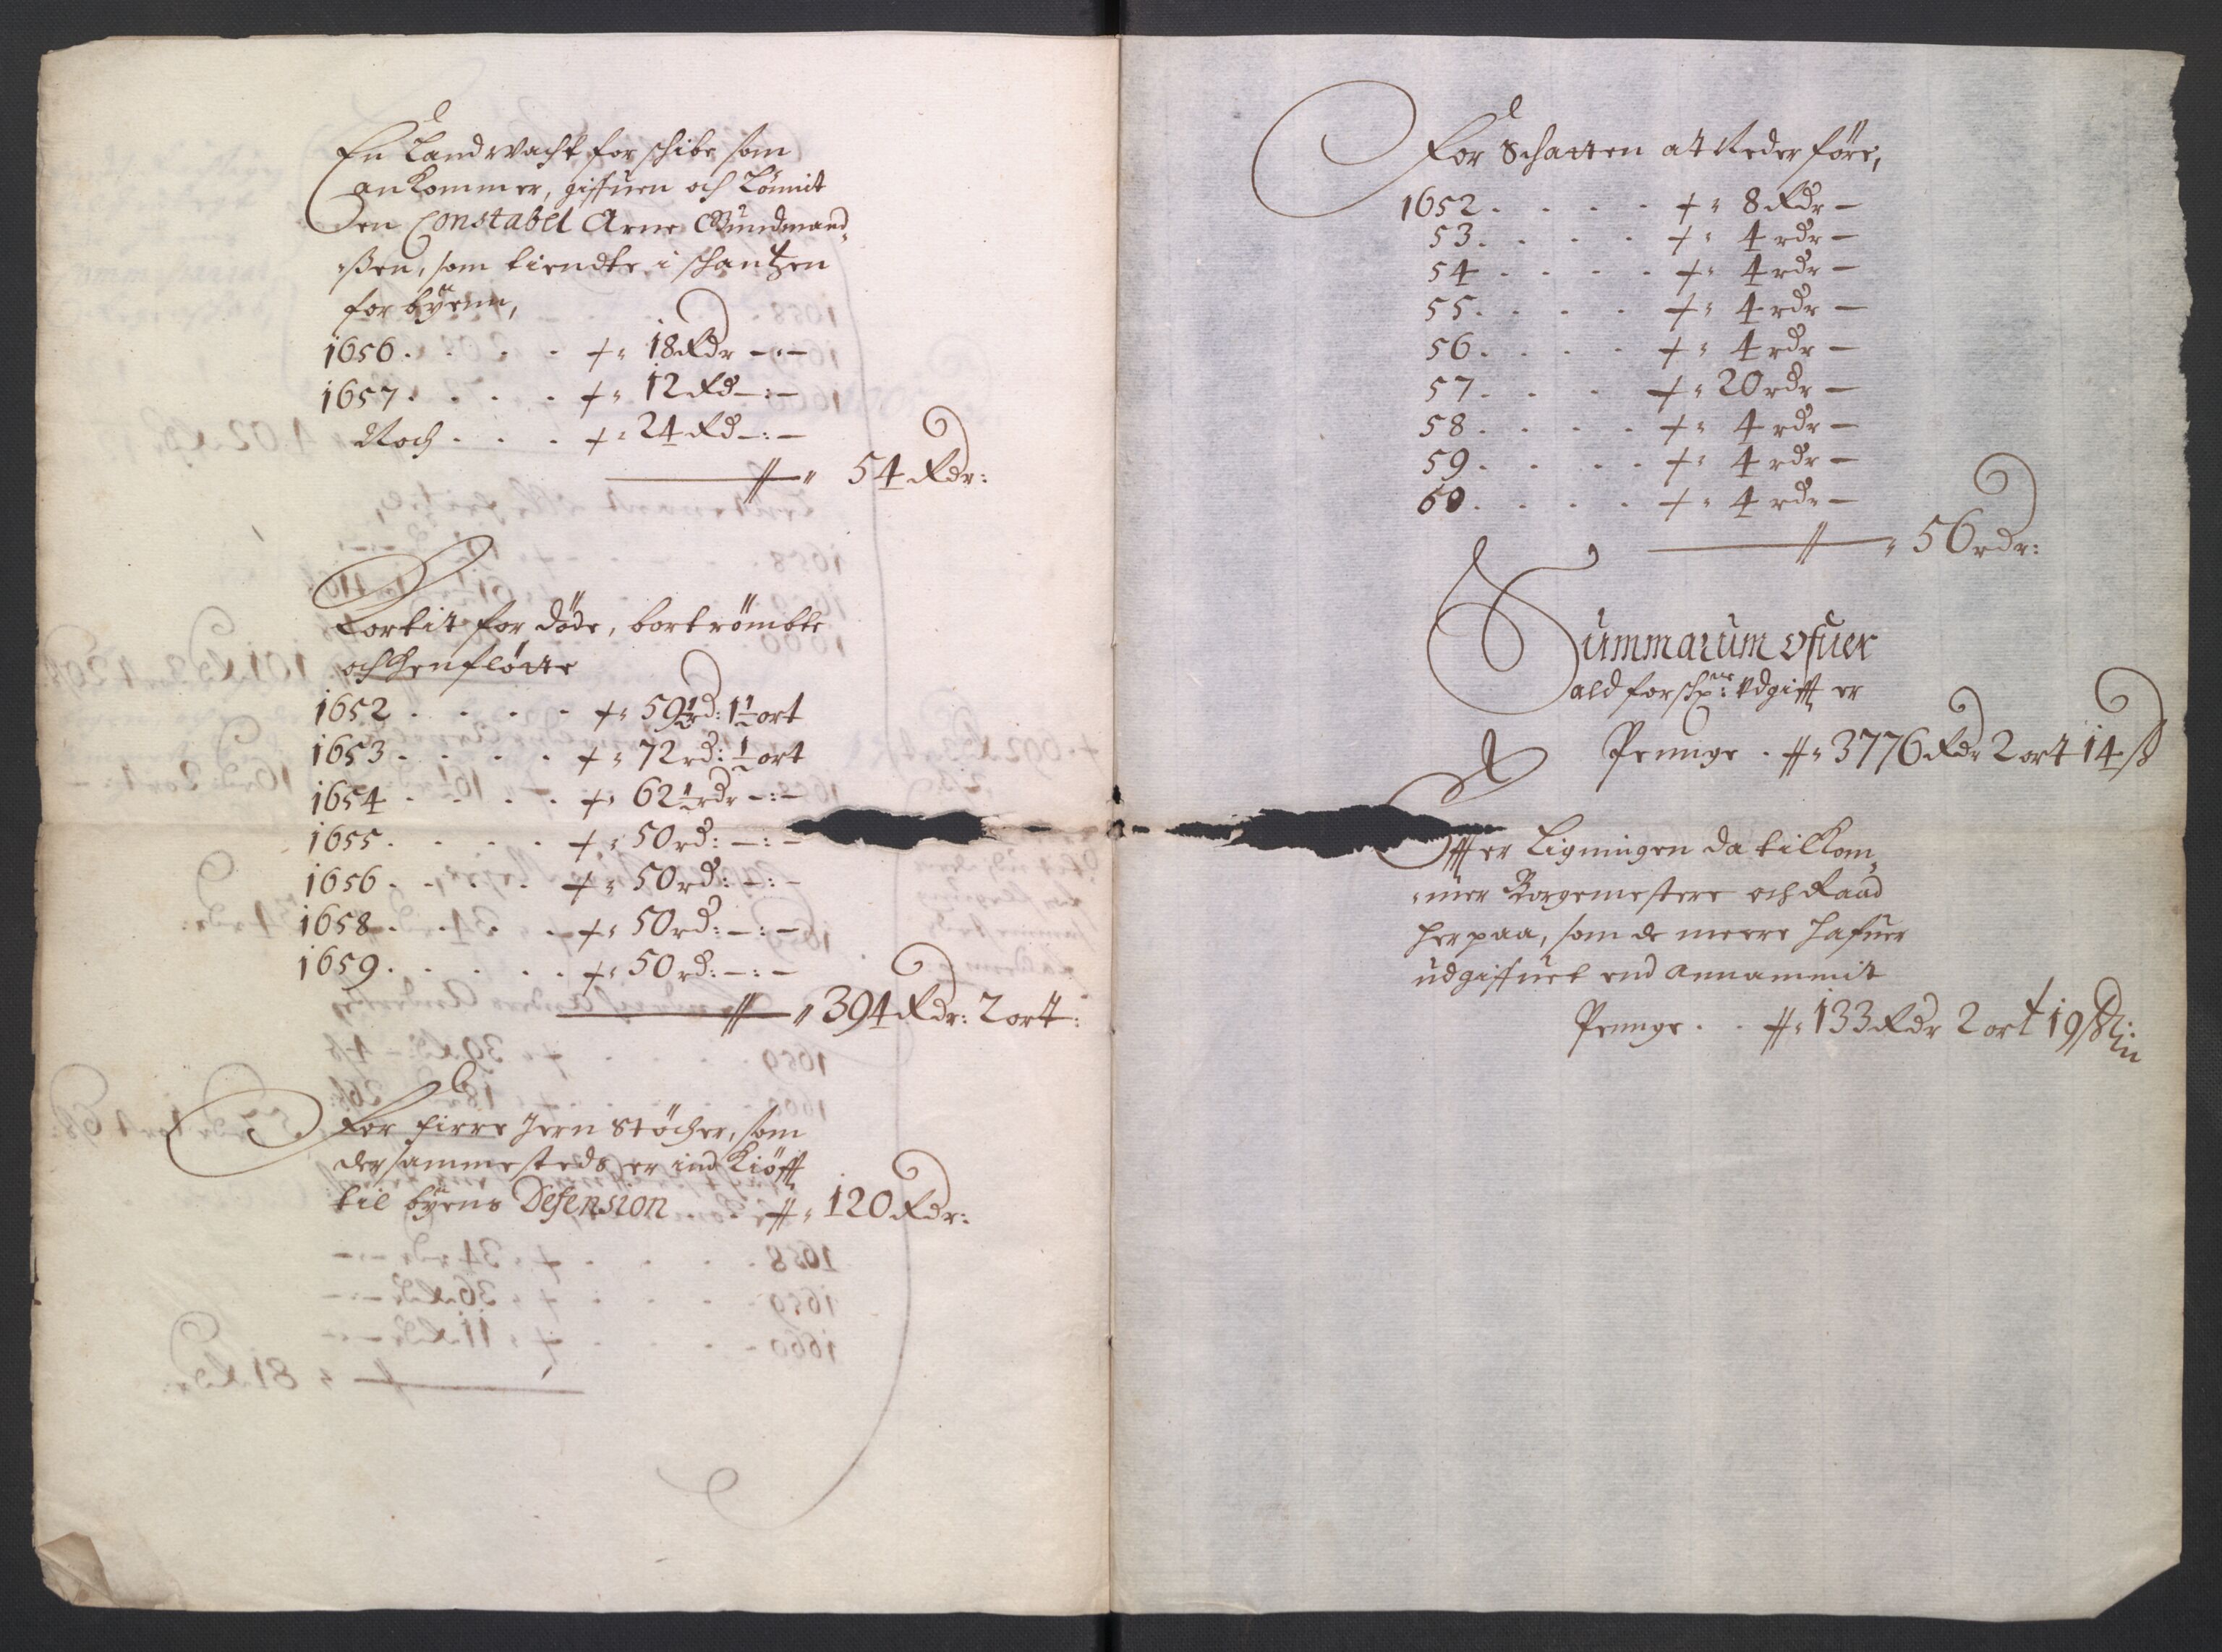 En Landwacht for schibe som
ankommer, giffuen och Lönnit
den Constabel Arne Gundmand-
ßen, som tiendte i schantzen
for byenn,
1656 . . . . 18 Rdr -:-
1657 . . . . 12 Rd -:-
Noch . . . 24 Rd -:-
54 Rdr:
Kortit for döde, bortrömbte
och Henfløtte
1652 . . . . 59½ rd: 1½ ort
1653 . . . . 72 rd: ½ ort
1654 . . . . 62½ rdr -:-
1655 . . . . 50 rd: -:-
1656 . . . . 50 rd: -:-
1658 . . . . 50 rd: -:-
1659 . . . . 50 rd: -:-
394 Rdr: 2 ort:
For firre Jern Stöcher, som
der sammesteds er ind Kiöfft
til byens Defension . . 120 Rdr:
For Schatten at Neder före,
1652 . . . . 8 Rdr -
53 . . . . 4 rdr -
54 . . . . 4 rdr -
55 . . . . 4 rdr -
56 . . . . 4 rdr -
57 . . . 20 rdr -
58 . . . . 4 rdr -
59 . . . . 4 rdr -
60 . . . . 4 rdr -
56 rdr:
Summarum ofuer
ald forschne: Udgifft er
Penge . 3776 Rdr 2 ort 14 ß
Effter Ligningen da tilkom-
mer Borgemestere och Raad
her paa, som de meere hafuer
udgiffuet end annammit
Penge . . 133 Rdr 2 ort 19 ß